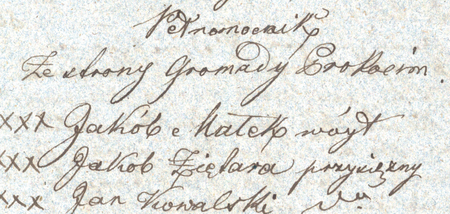 Pełnomocnik
Ze strony Gromady Prokocim.
XXX Jakób Małek wóyt
XXX Jakób Ziętara przysiężny
XXX Jan Kowalski